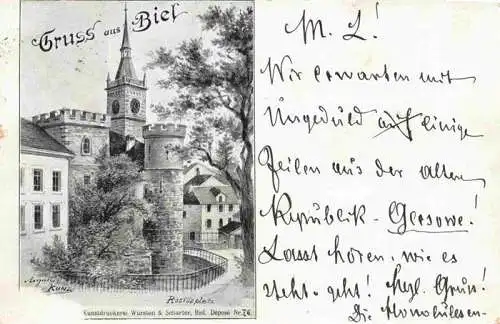 Gruss aus Biel
Auguste
Kunz
Rosiusplatz
Kunstdruckerei Wursten & Scherler, Biel. Deposé Nr. 76
M. L!
Wir erwarten mit
Ungeduld auf einige
Zeilen aus der alten
Republik - Gersowe!
Lasst hören, wie es
steht - geht! Hzgl. Gruss!
Die Monobülesen-